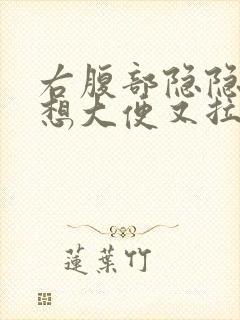 右腹部隐隐
想大便又拉
蓮葉竹